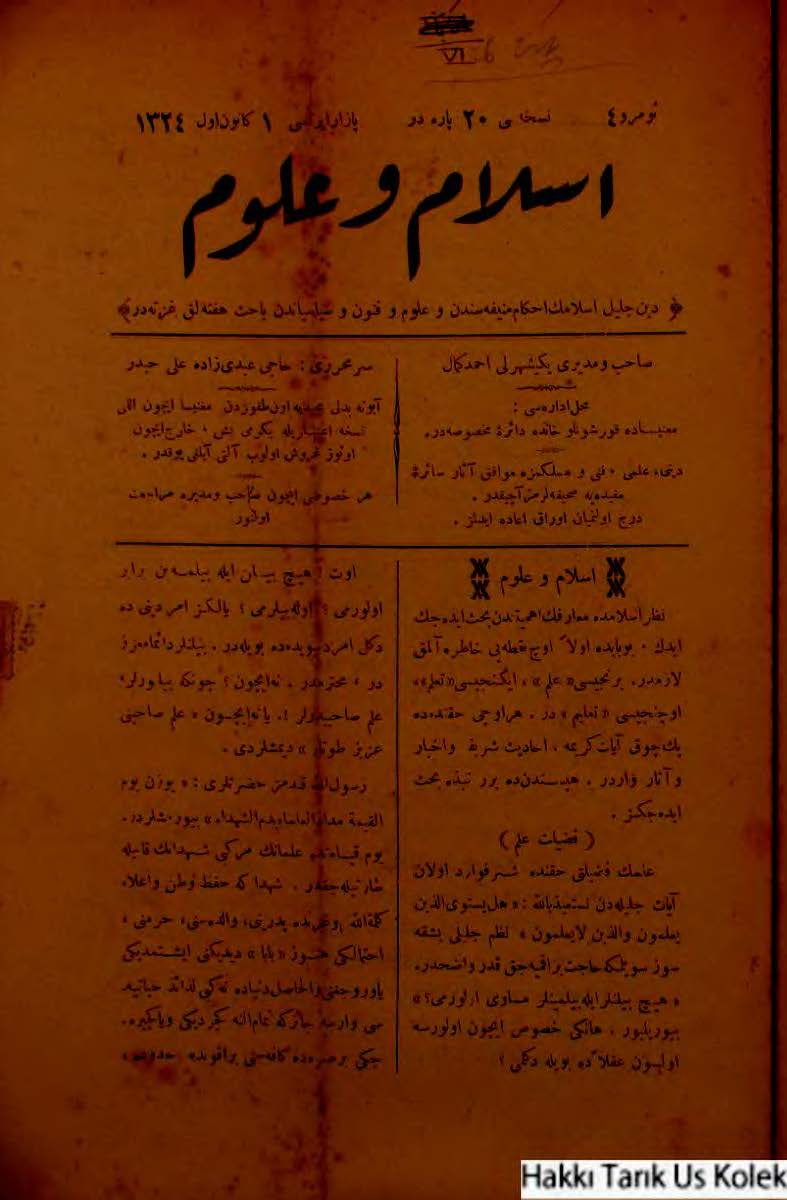 VI
نومرو ٤
نسخه سی ٢٠ پاره در
بازار ایرتسی ١ كانون اول ١٣٢٤
اسلام و علوم
دین جلیل اسلامك احكام منیفه سندن و علوم و فنون و سیاسیاتدن باحث هفته لق غزته در
صاحب و مدیری یكیشهرلی احمد كمال
محل اداره سی :
مغنیساده قورشونلو خانده دائرۀ مخصوصه در.
دینی، علمی ، فنی و مسلكمزه موافق آثار سائرۀ
مفیده یه صحیفه لرمز آچیقدر .
درج اولنمیان اوراق اعاده ایدلمز .
سر محرری : حاجی عبدی زاده علی حیدر
آبونه بدلی مجیدیه اون طقوزدن مغنیسا ایچون اللی
نسخه اعتباریله یكرمی بش ، خارج ایچون
اوتوز غروش اولوب آلتی آیلغی یوقدر .
هر خصوص ایچون صاحب و مدیره مراجعت
اولنور
اسلام و علوم
نظر اسلامده معارفك اهمیتندن بحث ایده جك
ایدك . بوبابده اولاً اوچ نقطه یی خاطره آلمق
لازمدر. برنجیسی « علم » ، ایكنجیسی « تعلم » ،
اوچنجیسی « تعلیم » در . هر اوچی حقنده ده
پك چوق آیات كریمه ، احادیث شریفه واخبار
و آثار واردر . هپسندن ده برر نبذه بحث
ایده جكز .
( فضیلت علم )
علمك فضیلتی حقنده شرفوارد اولان
آیات جلیله دن نستعیذ بالله : « هل یستوی الذین
یعلمون والذین لایعلمون » نظم جلیلی بشقه
سوز سویلمكه حاجت براقمیه جق قدر واضحدر.
« هیچ بیلنلر ایله بیلمینلر مساوی اولورمی ؟ »
بیوریلیور . هانكی خصوص ایچون اولورسه
اولسون عقلاً ده بویله دكلمی ؟
اوت ! هیچ بیلن ایله بیلمه ین برابر
اولورمی ؟ اوله بیلرمی ؟ یالكز امر دینی ده
دكل امر دنیویده ده بویله در . بیلنلر دائما معزز
در ، محترمدر . نه ایچون ؟ چونكه بیلیورلر،
علم صاحبیدرلر !. یا نه ایچون « علم صاحبنی
عزیز طوتار » دیمشلردی .
رسول الله افندمز حضرتلری : « یوزن یوم
القیمة مداد العلماء بدم الشهداء » بیورمشلردر.
یوم قیامتده علمانك مركبی شهدانك قانیله
طارتیله جقدر . شهدا كه حفظ وطن و اعلاء
كلمة الله اوغرنده پدرینی، والده سنی، حرمنی ،
احتمالكی هنوز « بابا » دیدیكنی ایشتمدیكی
یاوروجغنی والحاصل دنیاده نه كی لذائذ حیاتیه
سی وارسه